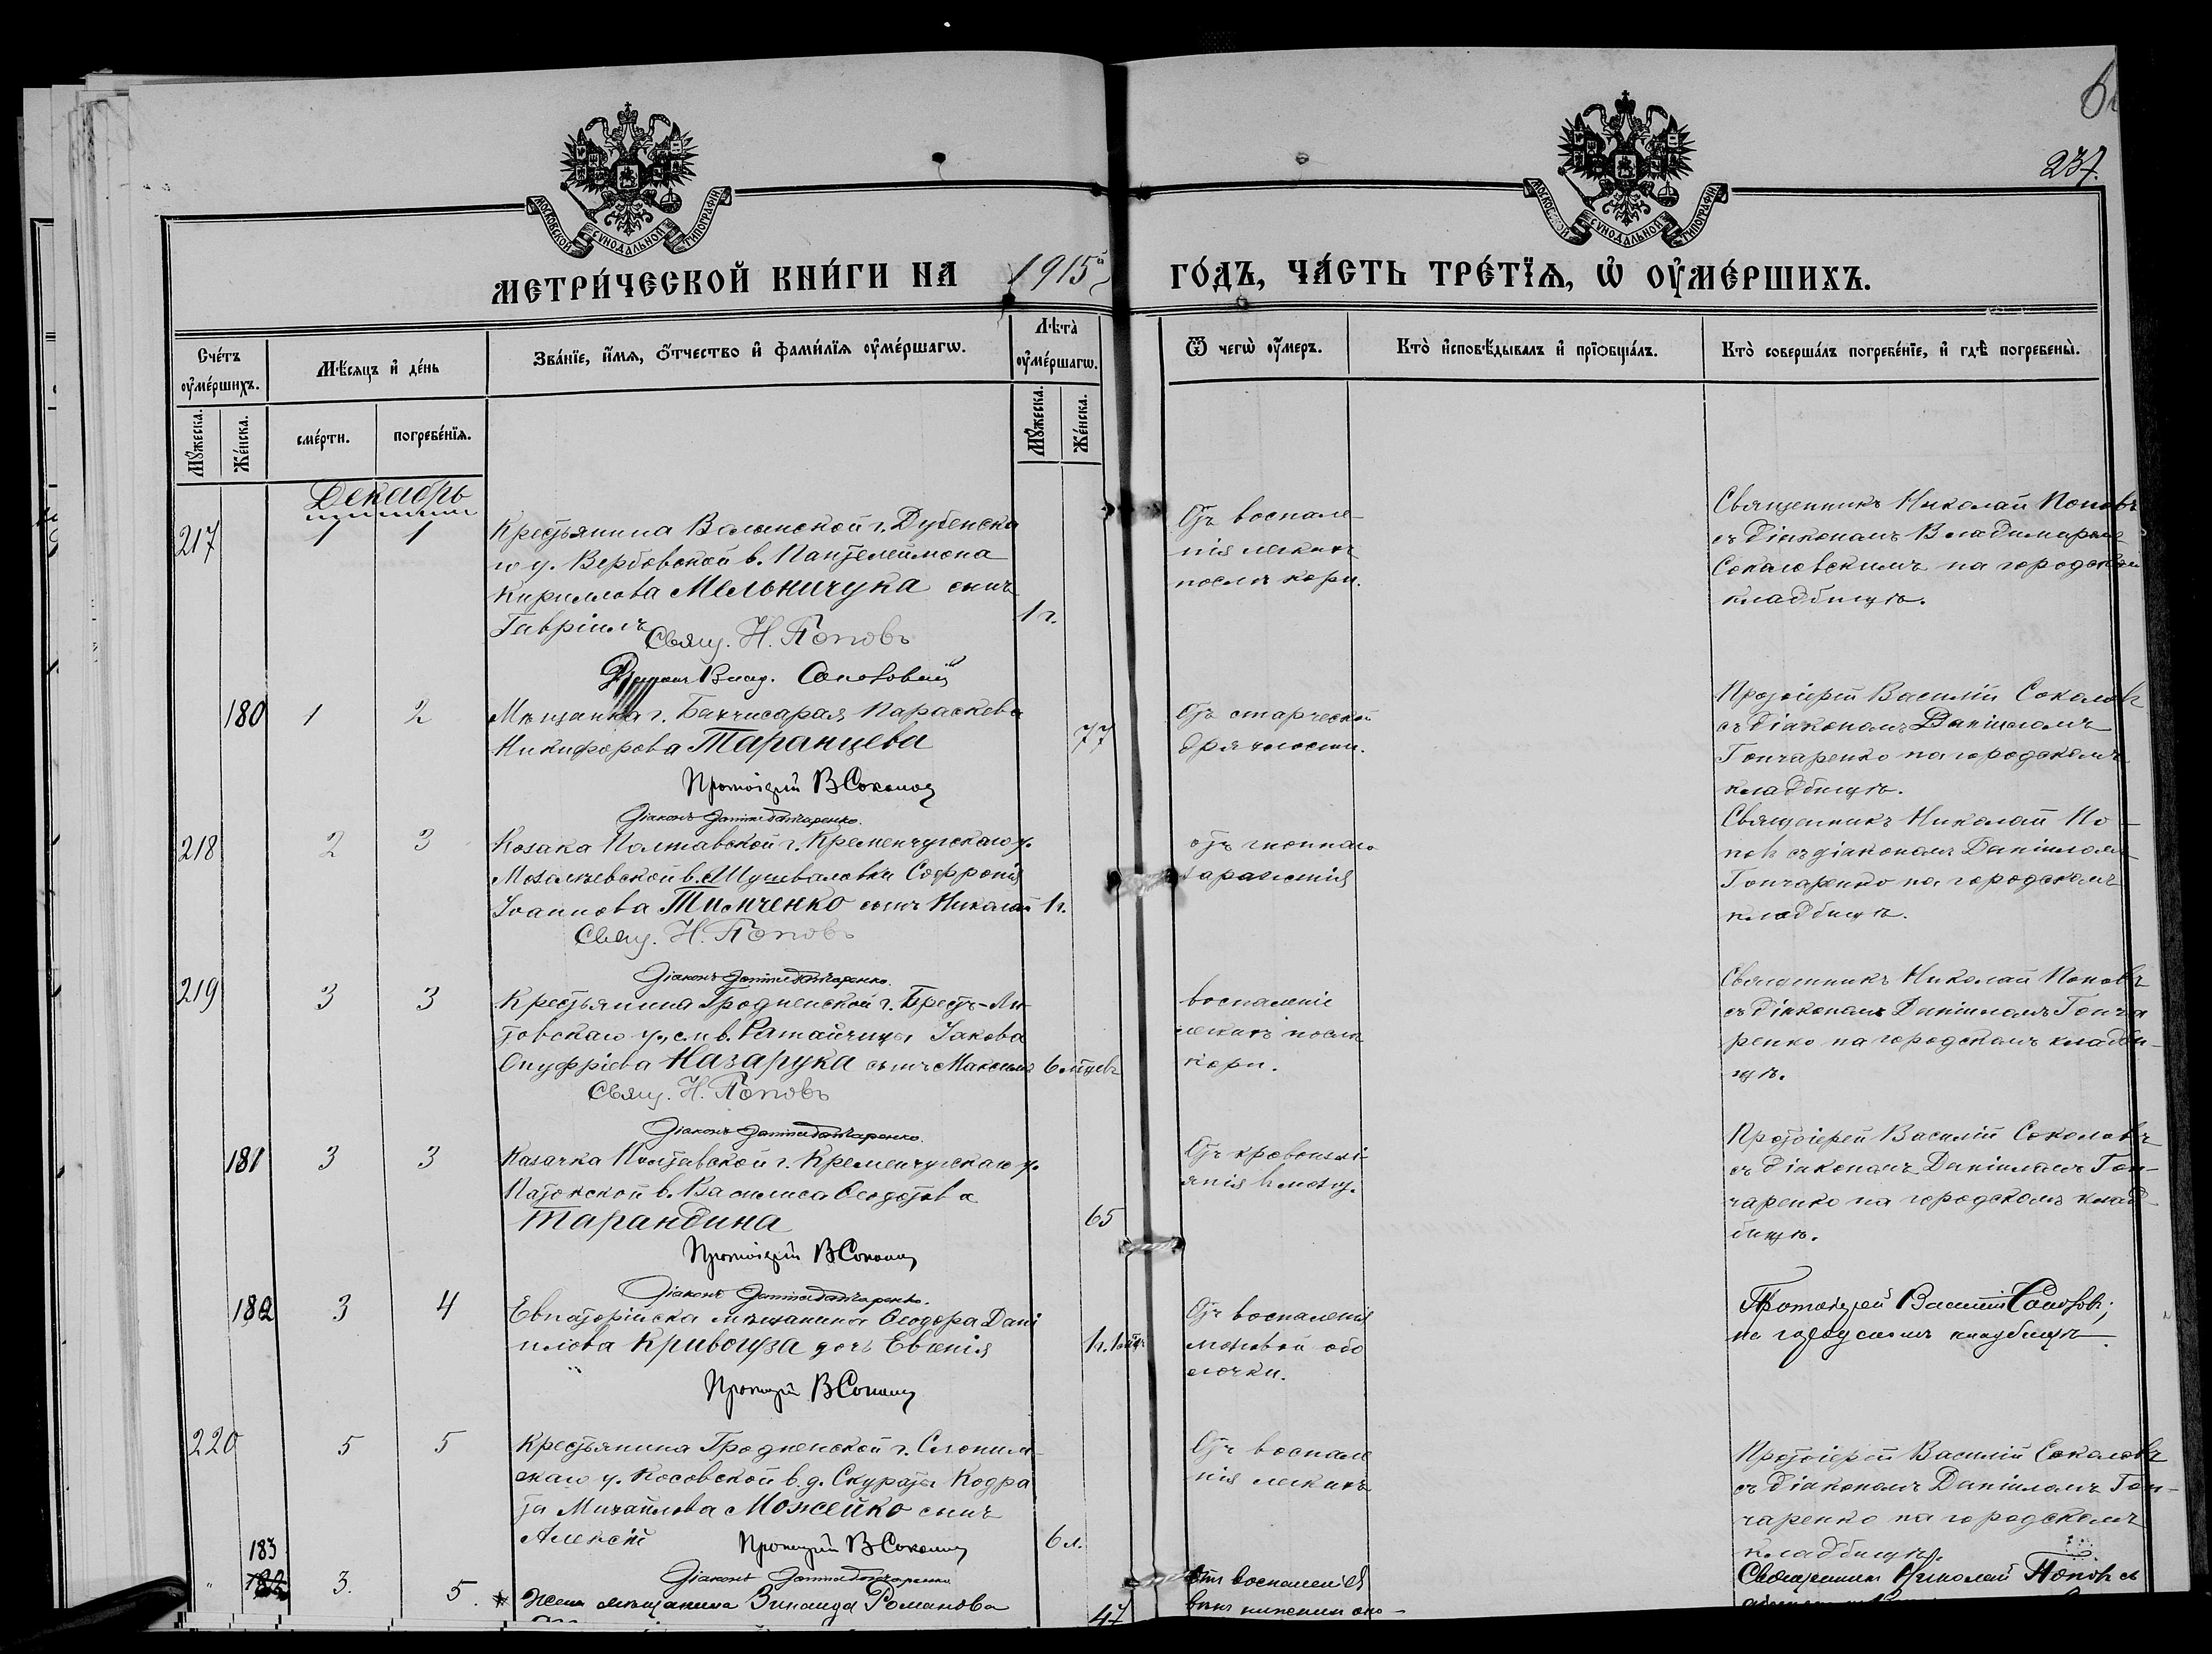 237.
МОСКОВСКОЙ СѴНОДАЛЬНОЙ ТИПОГРАФІИ
МОСКОВСКОЙ СѴНОДАЛЬНОЙ ТИПОГРАФІИ
МЕТРИ́ЧЕСКОЙ КНИ́ГИ НА 1915й ГО́ДЪ, ЧА́СТЬ ТРЕ́ТЇѦ, Ѡ҆ ОУ҆МЕ́РШИХЪ.
Сче́тъ оу҆ме́ршихъ.
Мѣ́сяцъ и҆ де́нь
Зва́нїе, и҆́мѧ, ѻ҆́тчество и҆ фами́лїѧ оу҆ме́ршагѡ.
Лѣ́та̀ оу҆ме́ршагѡ.
Ѿ чегѡ̀ оу҆́меръ.
Кто̀ и҆сповѣ́дывалъ и҆ прїѻбща́лъ.
Кто̀ соверша́лъ погребе́нїе, и҆ гдѣ̀ погребены̀.
Мꙋ́жеска.
Же́нска.
сме́рти.
погребе́нїѧ.
Мꙋ́жеска.
Же́нска.
Декабрь
217 1 1
Крестьянина Волынской г. Дубенска
го у. Вербовской в. Пантелеимона
Кириллова Мельничука сынъ
Гавріилъ 1 г.
Свящ. Н. Поповъ
Діаконъ Влад. Соколовскій
Отъ воспале-
нія легкихъ
послѣ кори.
Священникъ Николай Поповъ
съ діакономъ Владимиромъ
Соколовскимъ на городскомъ
кладбищѣ.
180 1 2
Мѣщанка г. Бахчисарая Параскева
Никифорова Таранцева 77
Протоіерей В Соколовъ
Діаконъ Даніилъ Гончаренко.
Отъ старческой
дряхлости.
Протоіерей Василій Соколовъ
съ діакономъ Даніиломъ
Гончаренко на городскомъ
кладбищѣ.
218 2 3
Козака Полтавской г. Кременчугскаго у.
Софронія
Іоаннова Тимченко сынъ Николай 1 г.
Свящ. Н. Поповъ
Діаконъ Даніилъ Гончаренко.
отъ гноинаго
Священникъ Николай По-
повъ съ діакономъ Даніиломъ
Гончаренко на городскомъ
кладбищѣ.
219 3 3
Крестьянина Гродненской г. Брестъ-Ли-
товскаго у., с. и в. Ратайчицы Іакова
Онуфріева Назарука сынъ Максимъ 6 мцевъ
Свящ. Н. Поповъ
Діаконъ Даніилъ Гончаренко.
воспаленіе
легкихъ послѣ
кори.
Священникъ Николай Поповъ
съ діакономъ Даніиломъ Гонча
ренко на городскомъ кладби-
щѣ.
181 3 3
Казачка Полтавской г. Кременчугскаго у.
Потокской в. Василиса Ѳеодотова
Тарандина 65
Протоіерей В Соколовъ
Діаконъ Даніилъ Гончаренко.
Отъ кровоизлі-
янія въ мозгу.
Протоіерей Василій Соколовъ
съ діакономъ Даніиломъ Гон-
чаренко на городскомъ клад-
бищѣ.
182 3 4
Евпаторійска мѣщанина Ѳеодора Дані
илова Кривогуза дочь Евгенія
Протоіерей В Соколовъ
Отъ воспаленія
мозговой обо
лочки.
Протоіерей Василій Соколовъ;
на городскомъ кладбищѣ.
220 5 5
Крестьянина Гродненской г. Слоним-
скаго у. Косовской в. д. Скураты Кодра
та Михайлова Можейко сынъ
Алексій 6 л.
Протоіерей В Соколовъ
Діаконъ Даніилъ Гончаренко
Отъ воспале
нія легкихъ
Протоіерей Василій Соколовъ
съ діакономъ Даніиломъ Гон-
чаренко на городскомъ
кладбищѣ.
183 3. 5.
Жена мѣщанина Зинаида Романова
47
Отъ воспаленія
Священникъ Николай Поповъ съ